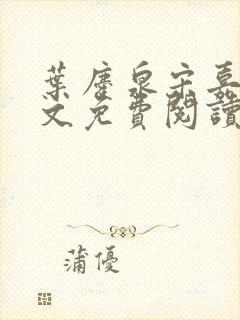 葉塵泉宋嘉
文免費閱讀
蒲優